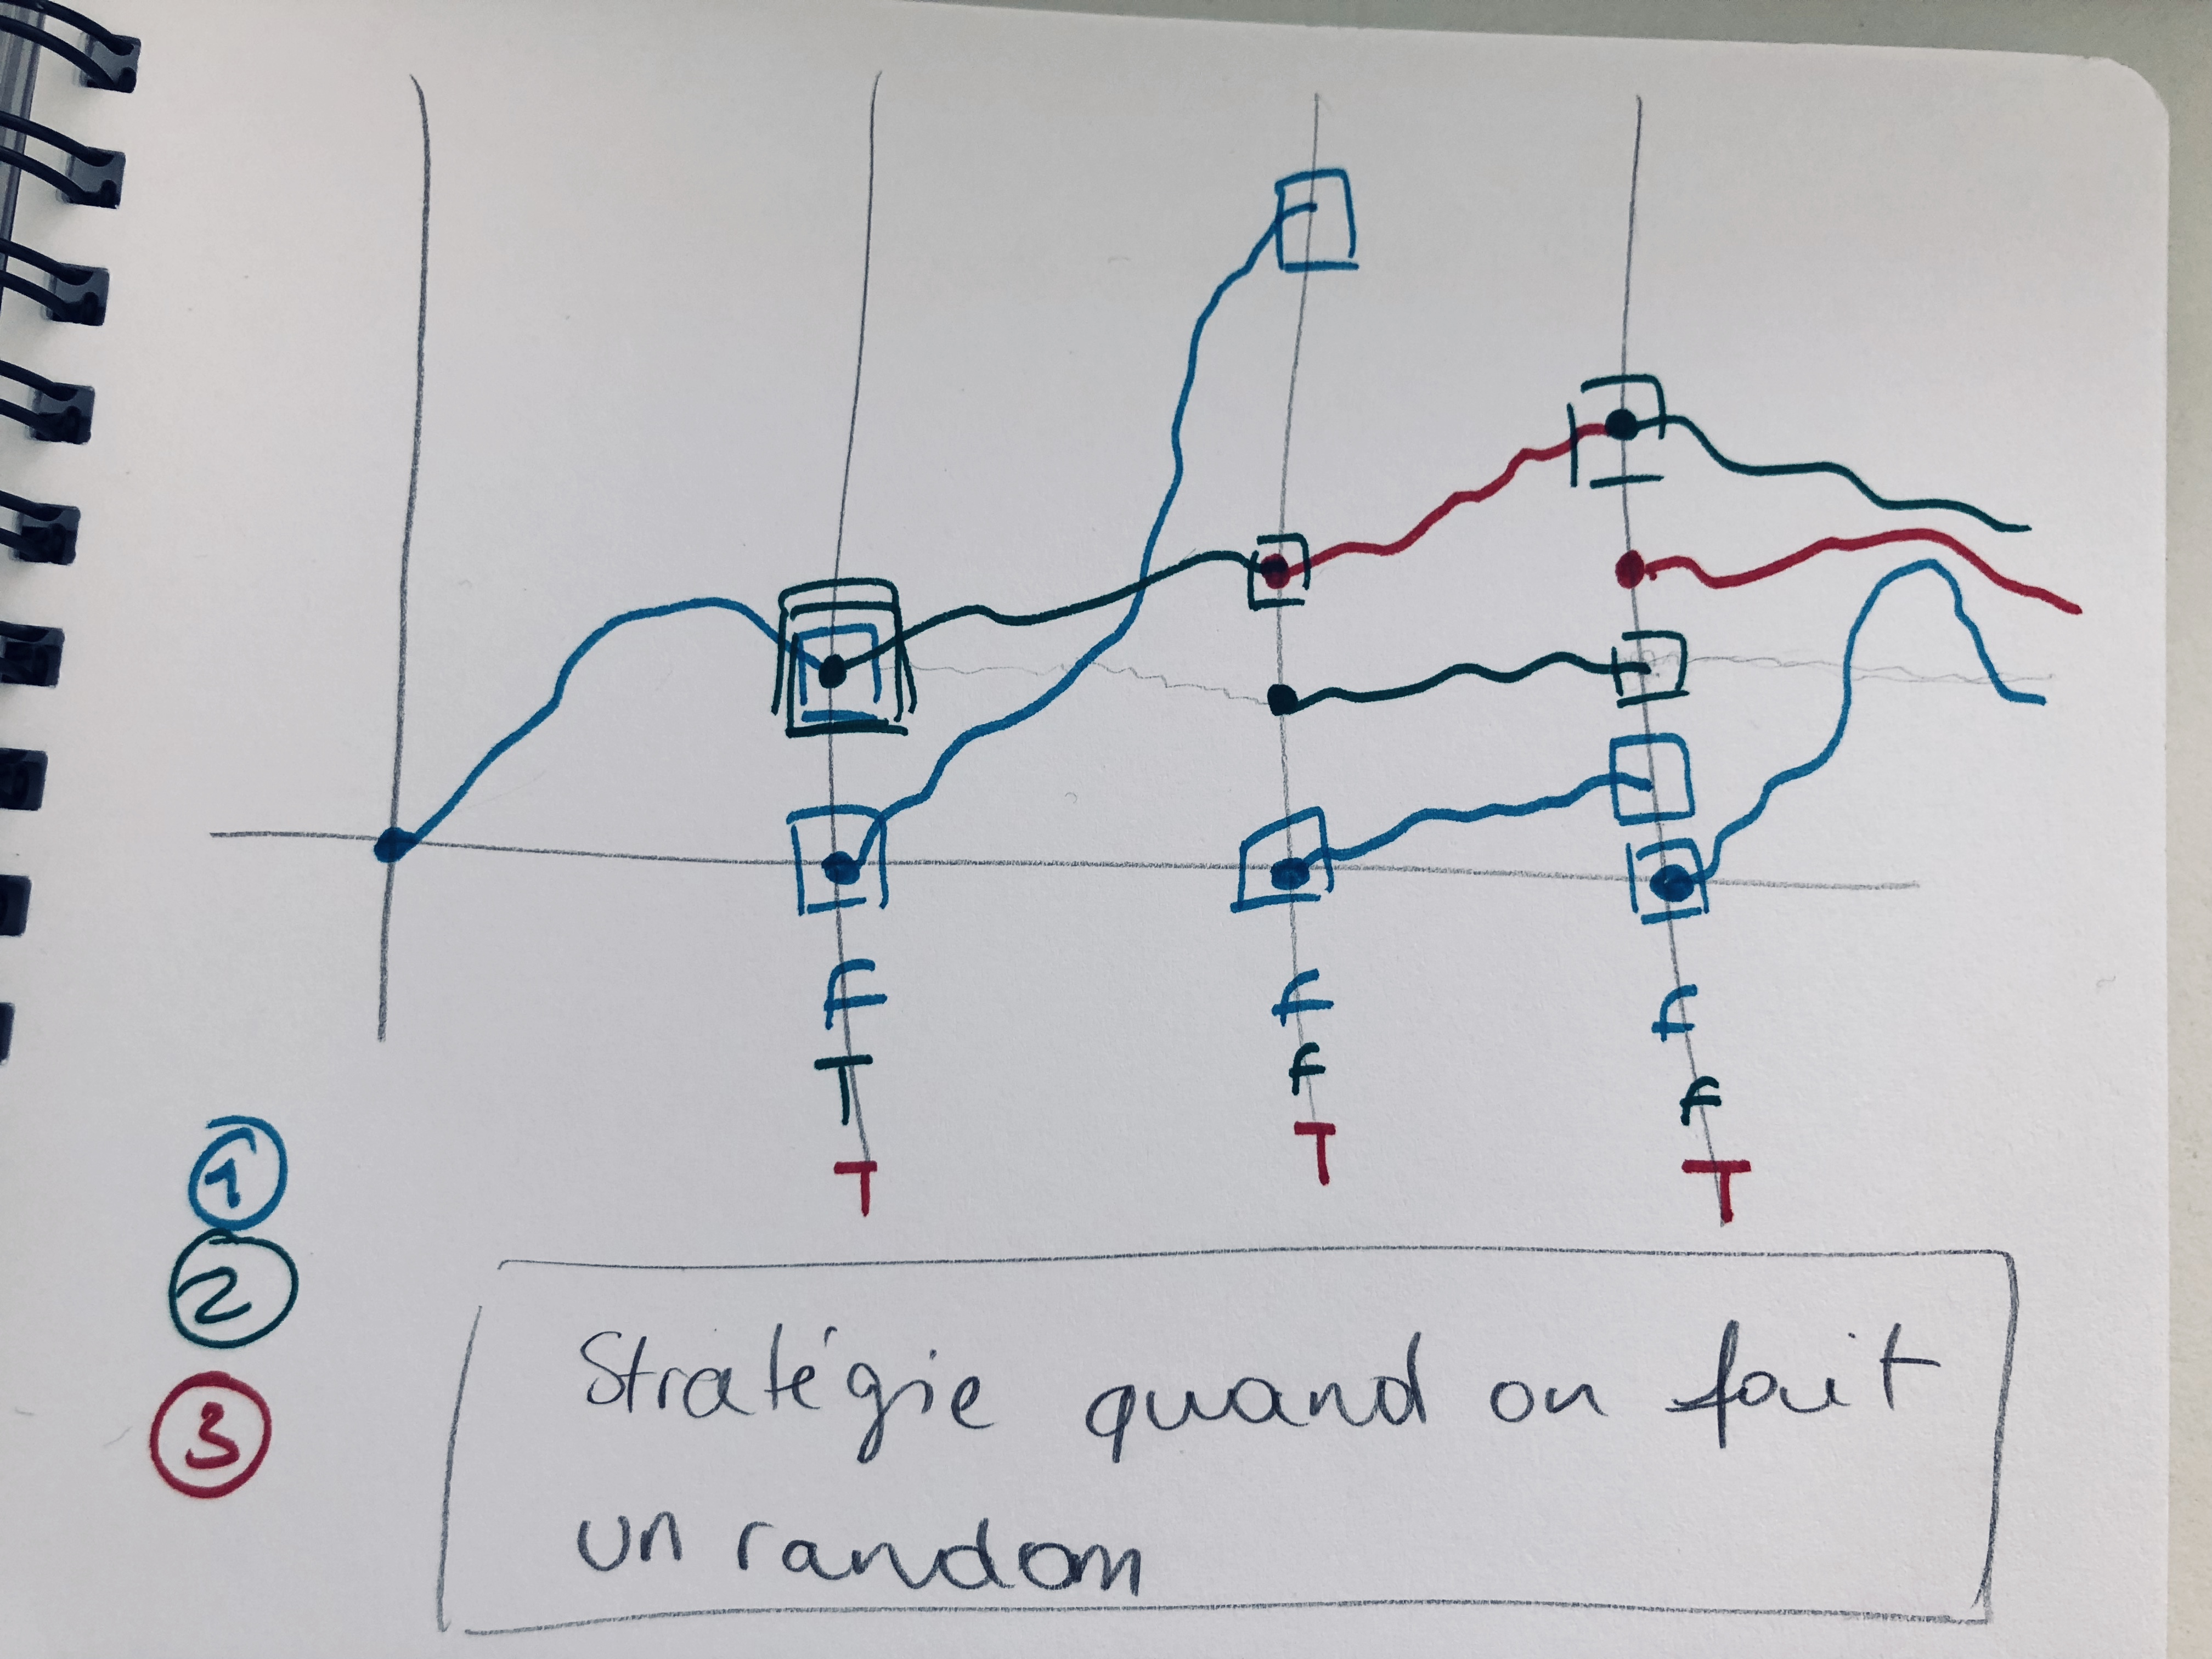 F F F
T F F
T T T
1
2
3
Stratégie quand on fait
un random